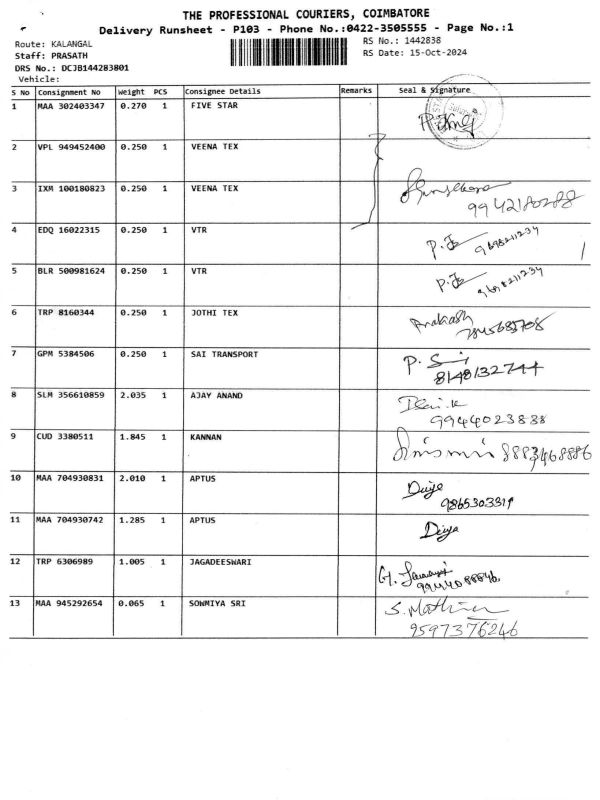 THE PROFESSIONAL COURIERS, COIMBATORE
Delivery Runsheet - P103 - Phone No.:0422-3505555 - Page No.:1
Route: KALANGAL RS No.: 1442838
Staff: PRASATH RS Date: 15-Oct-2024
DRS No.: DCJB144283801
Vehicle:
S No Consignment No Weight PCS Consignee Details Remarks Seal & Signature
1 MAA 302403347 0.270 1 FIVE STAR
2 VPL 949452400 0.250 1 VEENA TEX
3 IXM 100180823 0.250 1 VEENA TEX
9942180288
4 EDQ 16022315 0.250 1 VTR
9698211234
5 BLR 500981624 0.250 1 VTR
9698211234
6 TRP 8160344 0.250 1 JOTHI TEX
7 GPM 5384506 0.250 1 SAI TRANSPORT
8148132744
8 SLM 356610859 2.035 1 AJAY ANAND
9944023838
9 CUD 3380511 1.845 1 KANNAN 8883468886
10 MAA 704930831 2.010 1 APTUS Divya
11 MAA 704930742 1.285 1 APTUS Divya
12 TRP 6306989 1.005 1 JAGADEESWARI
13 MAA 945292654 0.065 1 SOWMIYA SRI
9597376246